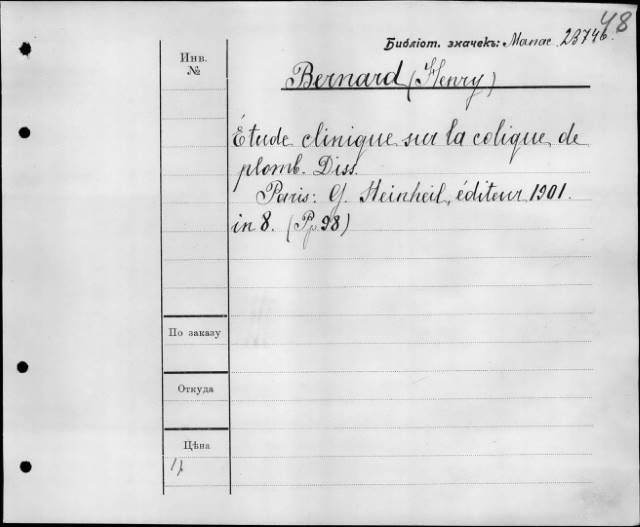 48
Библіот. значекъ: Магаз. 23746.
Инв.
№
Bernard (Henry)
Étude clinique sur la colique de
plomb. Diss.
Paris: G. Steinheil, éditeur 1901.
in 8. (Pp. 98)
По заказу
Откуда
Цѣна